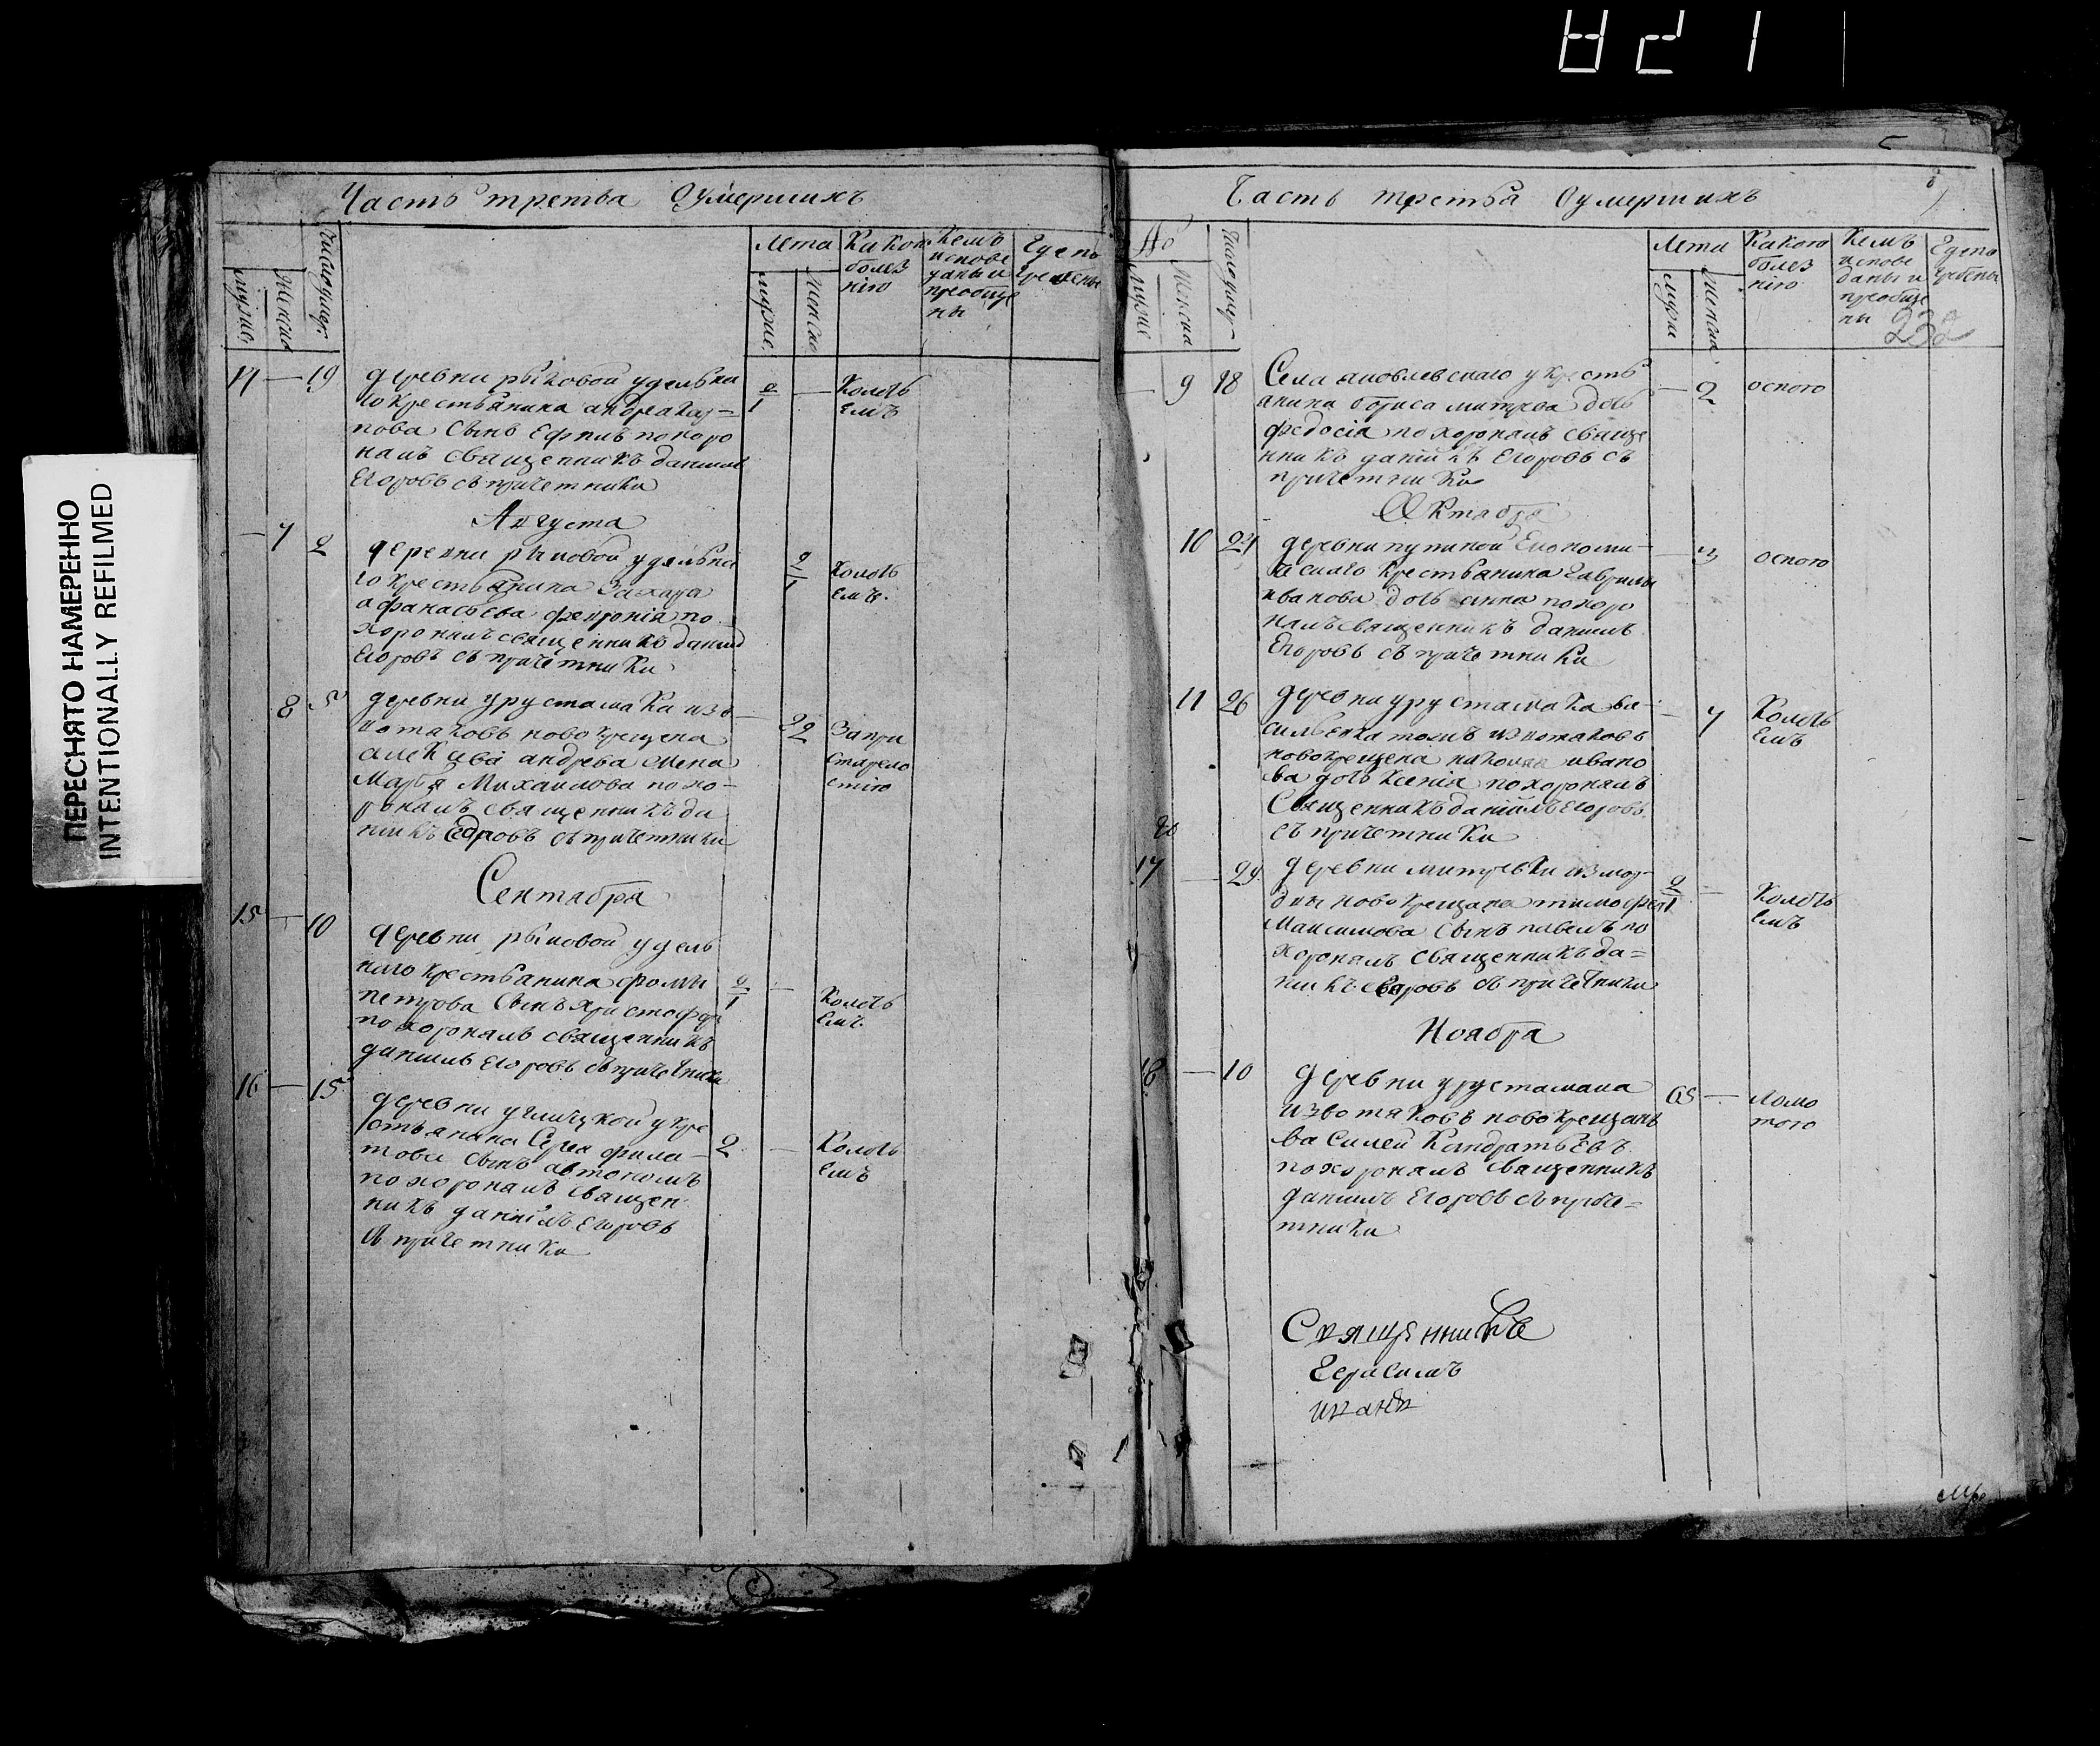 821
ПЕРЕСНЯТО НАМЕРЕННО
INTENTIONALLY REFILMED
Часть третья Оумершихъ
Лета
Какою
болез
нію
Кемъ
испове
даны и
приобще
ны
Где по
гребены
мужес.
женска
14 — 19
деревни рыковой удельна
го крестьянина андрея
сынъ похоро
нилъ священникъ даниилъ
Егоровъ съ причетники
1/2 — Колоть
емъ
Августа
— 7 2
деревни рыковой удельна
го крестьянина Захара
афанасьева феврония по
хоронилъ священникъ даниил
Егоровъ съ причетники
Колоть
емъ.
8 5
деревни урустамака изъ
вотяковъ новокрещена
алексея андреева жена
Марья Михаилова похо-
ронилъ священникъ да
съ причетники
22 Запри
старело
стію
Сентября
15 — 10
деревни рыковой удель
наго крестьянина фомы
петрова сынъ христофор
похоронилъ священникъ
даниилъ Егоровъ съ причетники
Колоть
емъ.
16 — 15
деревни у кре
стьянина Сергея фила-
това сынъ автономъ
похоронилъ священ
никъ даниилъ Егоровъ
съ причетники
2 — Колоть
емъ
Часть третья Оумершихъ
Лета
Какою
болез
нію
Кемъ
испове
даны и
приобще
ны
Где по
гребены
232
— 9 18
Села аковлевскаго у кресть
анина бориса митрева дочь
федосія похоронилъ свяще
нникъ Егоровъ съ
причетники
— 2 оспою
Октября
10 24
деревни Економи-
ческаго крестьянина Гаврилы
иванова дочь анна похоро
нилъ священникъ даниилъ
Егоровъ съ причетники
— 3 оспою
11 26
деревни урустамака ва-
сильевка тожъ из вотяковъ
новокрещена николая ивано
ва дочь Ксенія похоронилъ
Священникъ даниилъ Егоровъ
съ причетники
— 4 Колоть
емъ
17 — 29
деревни митревки из мор-
двы новокрещена тимофея
Максимова сынъ павелъ по
хоронилъ священникъ да=
съ причетники
Колоть
емъ
Ноября
18 — 10
деревни урустамака
из вотяковъ новокрещенъ
василей Кондратьевъ
похоронилъ священникъ
даниилъ Егоровъ съ приче=
тники
65 — Ломо
тою
Священникъ
Герасимъ